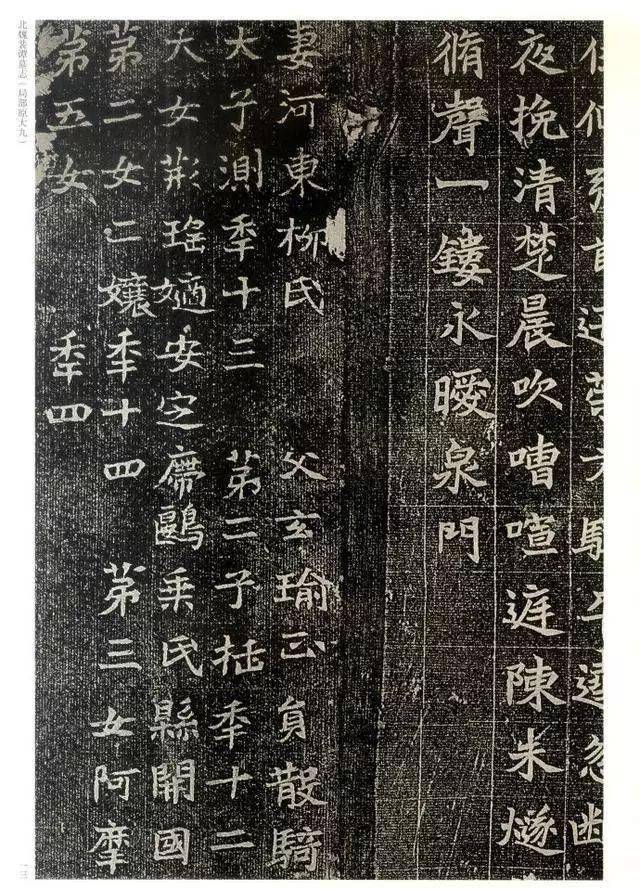 夜挽清楚晨吹嘈喧遅陳朱燧
脩聲一鏤永曖泉門
妻河東柳氏　父玄瑜正員散騎
大子測秊十三　第二子栝秊十二
大女荊瑤適安定席鷗乘氏縣開國
第二女二孃秊十四　第三女阿摩
第五女　秊四
北魏裴譚墓志（局部原大九）
一三